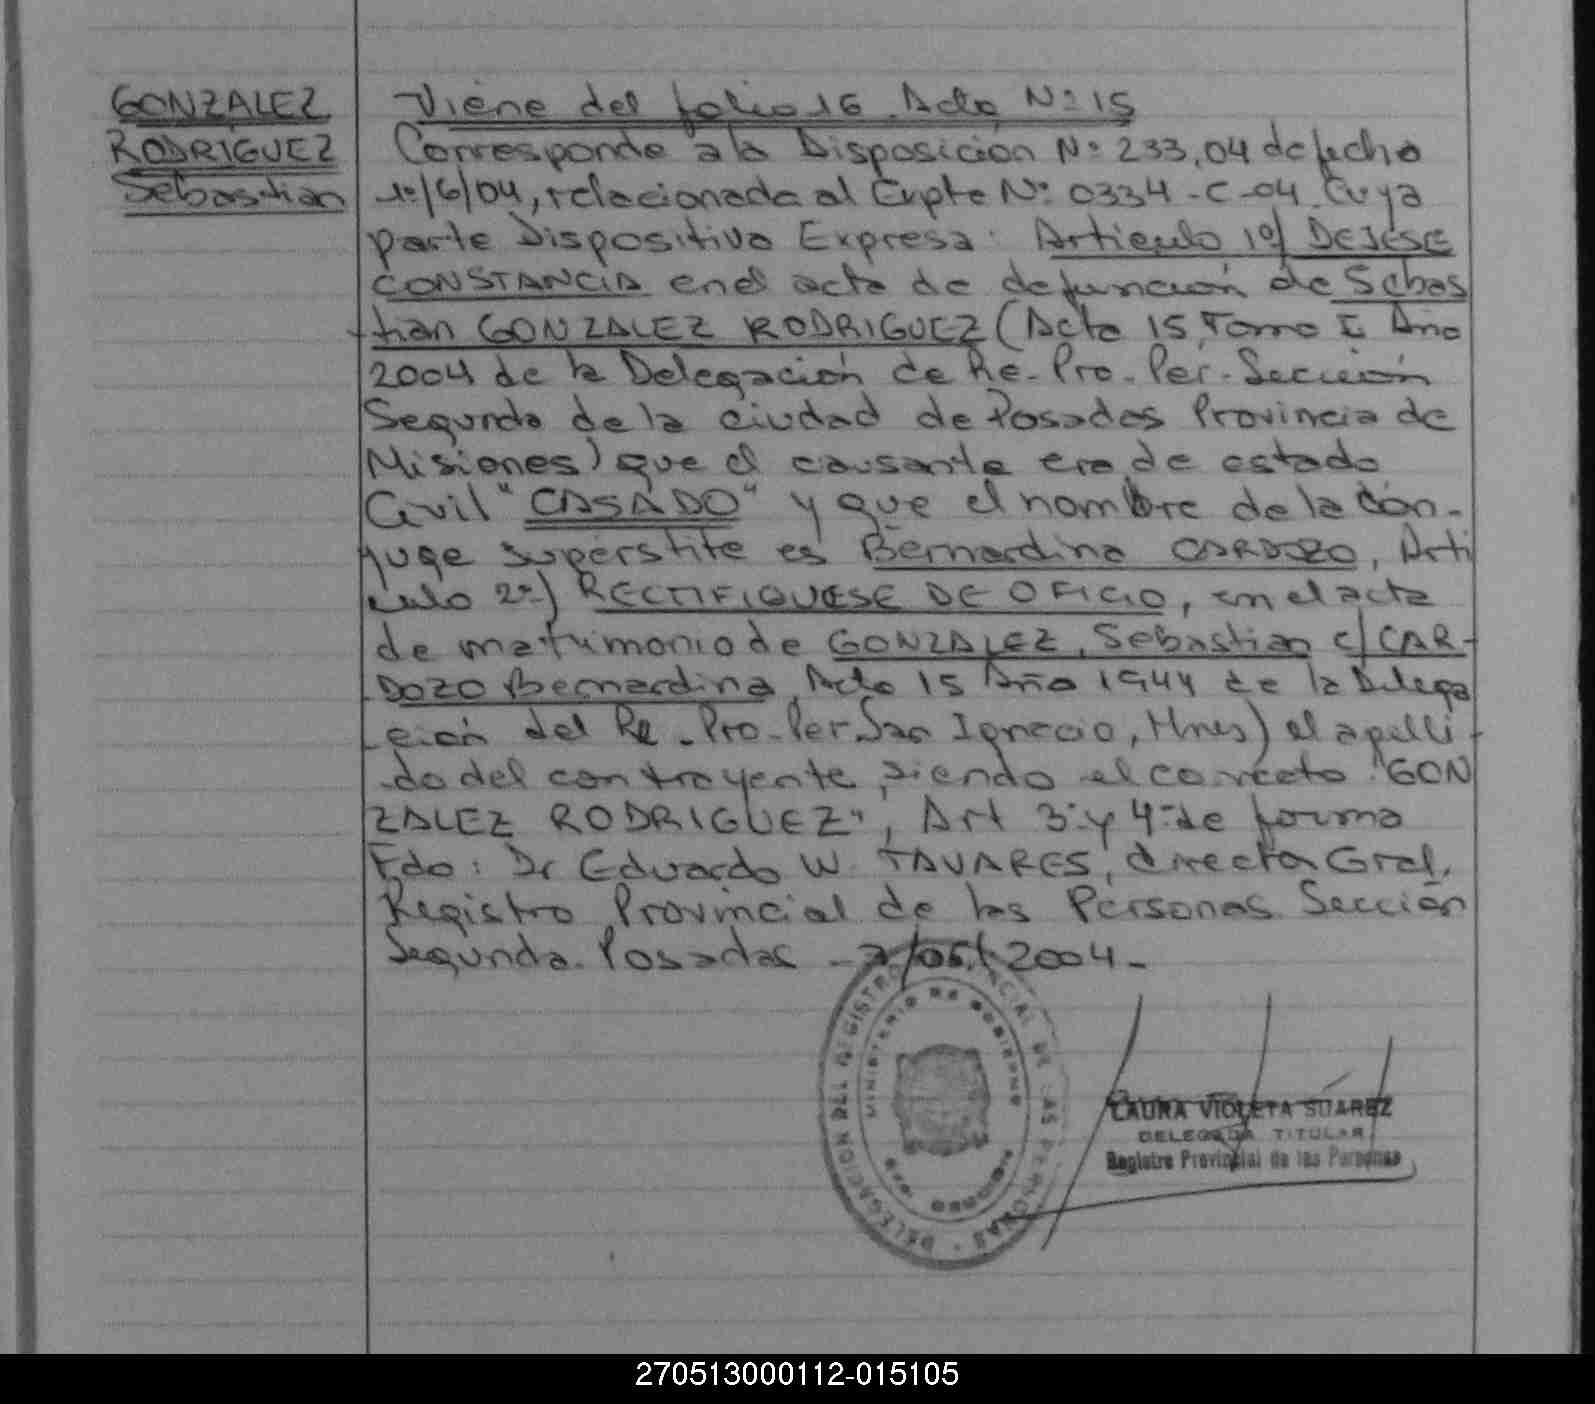 GONZALEZ
RODRIGUEZ
Sebastian
Viene del folio 16. Acta Nº 15
Corresponde a la Disposición Nº 233.04 de fecha
1º/6/04, relacionada al Expte Nº 0334-C-04 Cuya
parte Dispositiva Expresa: Articulo 1º/ DEJESE
CONSTANCIA en el acta de defunción de Sebas
tian GONZALEZ RODRIGUEZ (Acta 15, Tomo I Año
2004 de la Delegación de Re-Pro-Per-Sección
Segunda de la ciudad de Posadas Provincia de
Misiones) que el causante era de estado
Civil "CASADO" y que el nombre de la Cón-
yuge supérstite es Bernardina CARDOZO, Arti
culo 2º) RECTIFIQUESE DE OFICIO, en el acta
de matrimonio de GONZALEZ, Sebastian c/ CAR-
DOZO Bernardina, Acta 15 Año 1944 de la Delega
ción del Re-Pro-Per San Ignacio, Mnes) el apelli-
do del contrayente, siendo el correcto "GON
ZALEZ RODRIGUEZ", Art 3º y 4º de forma
Fdo: Dr Eduardo W. TAVARES, director Gral.
Registro Provincial de las Personas Sección
Segunda. Posadas - /06/2004-
DELEGACION DEL REGISTRO PROVINCIAL DE LAS PERSONAS
MINISTERIO DE GOBIERNO
LAURA VIOLETA SUAREZ
DELEGADA TITULAR
Registro Provincial de las Personas
270513000112-015105